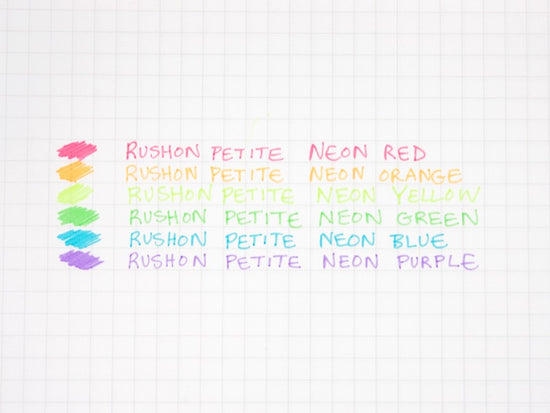 RUSHON PETITE NEON RED
RUSHON PETITE NEON ORANGE
RUSHON PETITE NEON YELLOW
RUSHON PETITE NEON GREEN
RUSHON PETITE NEON BLUE
RUSHON PETITE NEON PURPLE